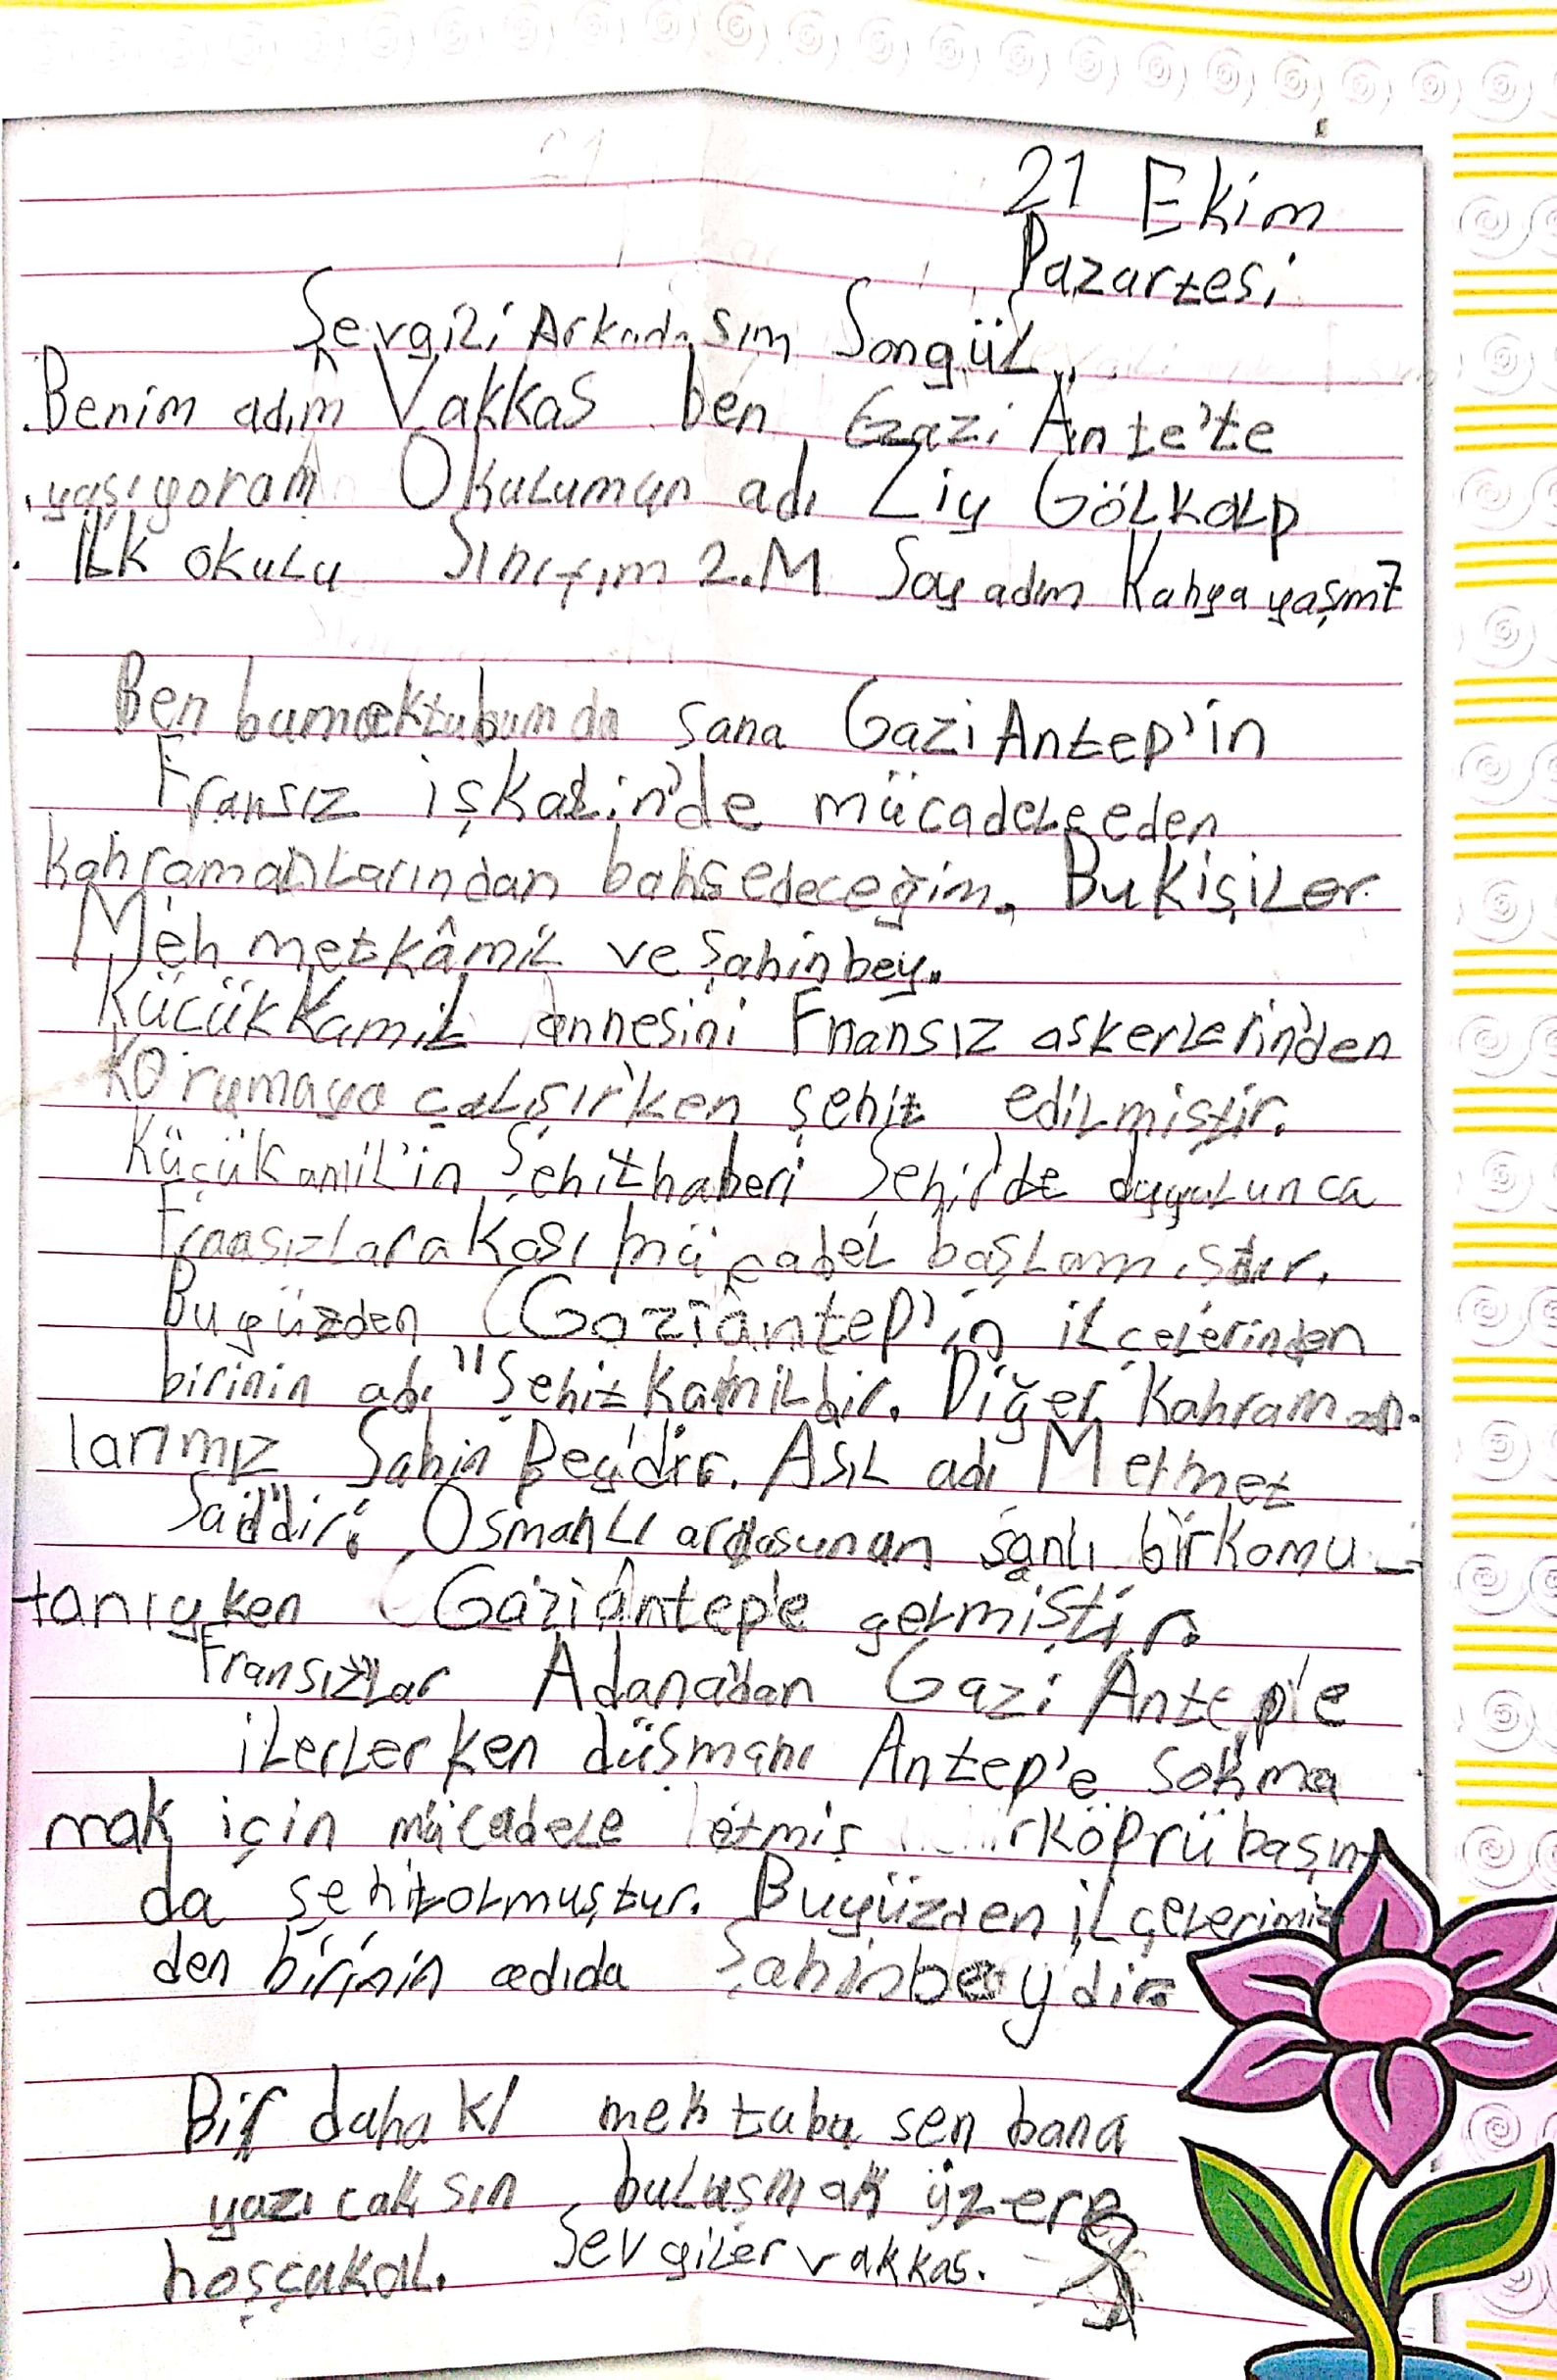 21 Ekim
Pazartesi
Sevgili Arkadaşım Songül,,
Benim adım Vakkas ben Gazi Ante'te
yaşıyoram Okulumun adı Ziy Gölkalp
ilk okulu Sınıfım 2.M Soy adım Kahya yaşım7
Ben bumektubumda sana Gazi Antep'in
Fransız işkalin'de mücadele eden
kahramanlarından bahsedeceğim. Bu kişiler
Mehmetkâmil ve şahinbey.
Küçük Kamil annesini Fransız askerlerin'den
korumaya çalışır'ken şehit edilmiştir.
Küçükamil'in Şehithaberi Şehir'de duyulunca
Fransızlara kaşı mücabel başlamıştır.
Bu yüzden Gaziantep'in ilçelerinden
birinin adı "Şehitkamildir. Diğer kahraman-
larımız Şahin Bey'dir. Asıl adı Mehmet
Said'dir. Osmanlı ordusunun şanlı birkomu-
tanıyken Gaziantep'e gelmiştir.
Fransızlar Adana'dan Gazi Antep'e
ilerlerken düşmanı Antep'e sokma
mak için mücadele etmiş köprü başın
da şehitolmuştur. Buyüzden ilçelerimiz
den birinin adıda Şahinbeydir.
Bir daha ki mektubu sen bana
yazıcaksın buluşmak üzere
hoşçakal. Sevgiler vakkas.